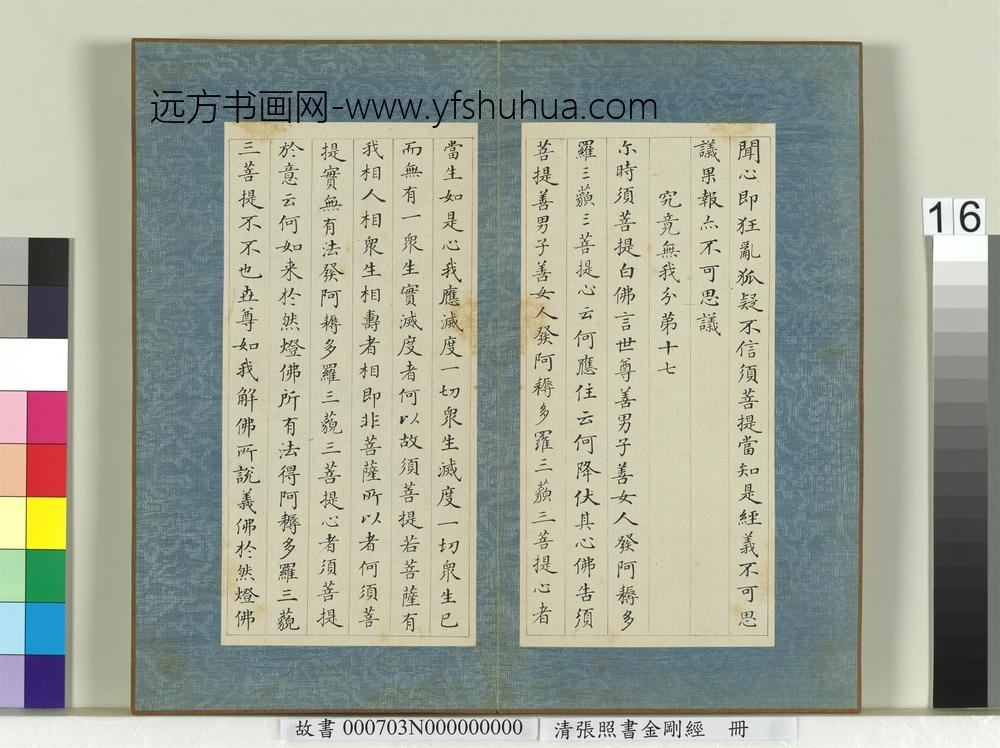 远方书画网-www.yfshuhua.com
聞心即狂亂狐疑不信須菩提當知是經義不可思
議果報亦不可思議
究竟無我分第十七
尒時須菩提白佛言世尊善男子善女人發阿耨多
羅三藐三菩提心云何應住云何降伏其心佛告須
菩提善男子善女人發阿耨多羅三藐三菩提心者
當生如是心我應滅度一切衆生滅度一切衆生已
而無有一衆生實滅度者何以故須菩提若菩薩有
我相人相衆生相壽者相即非菩薩所以者何須菩
提實無有法發阿耨多羅三藐三菩提心者須菩提
於意云何如来於然燈佛所有法得阿耨多羅三藐
三菩提不不也世尊如我解佛所說義佛於然燈佛
16
故書 000703N000000000 清張照書金剛經 冊